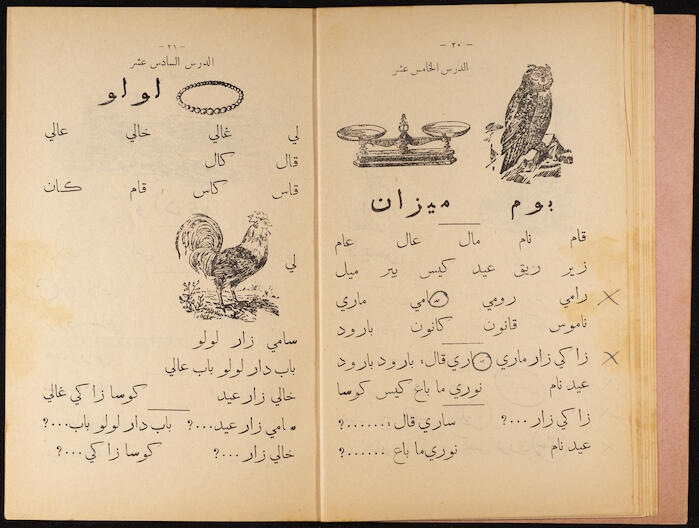 - ٢٠ -
الدرس الخامس عشر
بوم ميزان
قام نام مال عال عام
زير ريق عيد كيس بير ميل
رامي رومي سامي ماري
ناموس قانون كانون بارود
زاكي زار ماري ساري قال: بارود بارود
عيد نام نوري ما باع كيس كوسا
زاكي زار ...؟ ساري قال: ......؟
عيد نام نوري ما باع ......؟
- ٢١ -
الدرس السادس عشر
لولو
لي غالي خالي عالي
قال كال
قاس كاس قام كان
لي
سامي زار لولو
باب دار لولو باب عالي
خالي زار عيد كوسا زاكي غالي
سامي زار عيد...؟ باب دار لولو باب...؟
خالي زار ...؟ كوسا زاكي ...؟